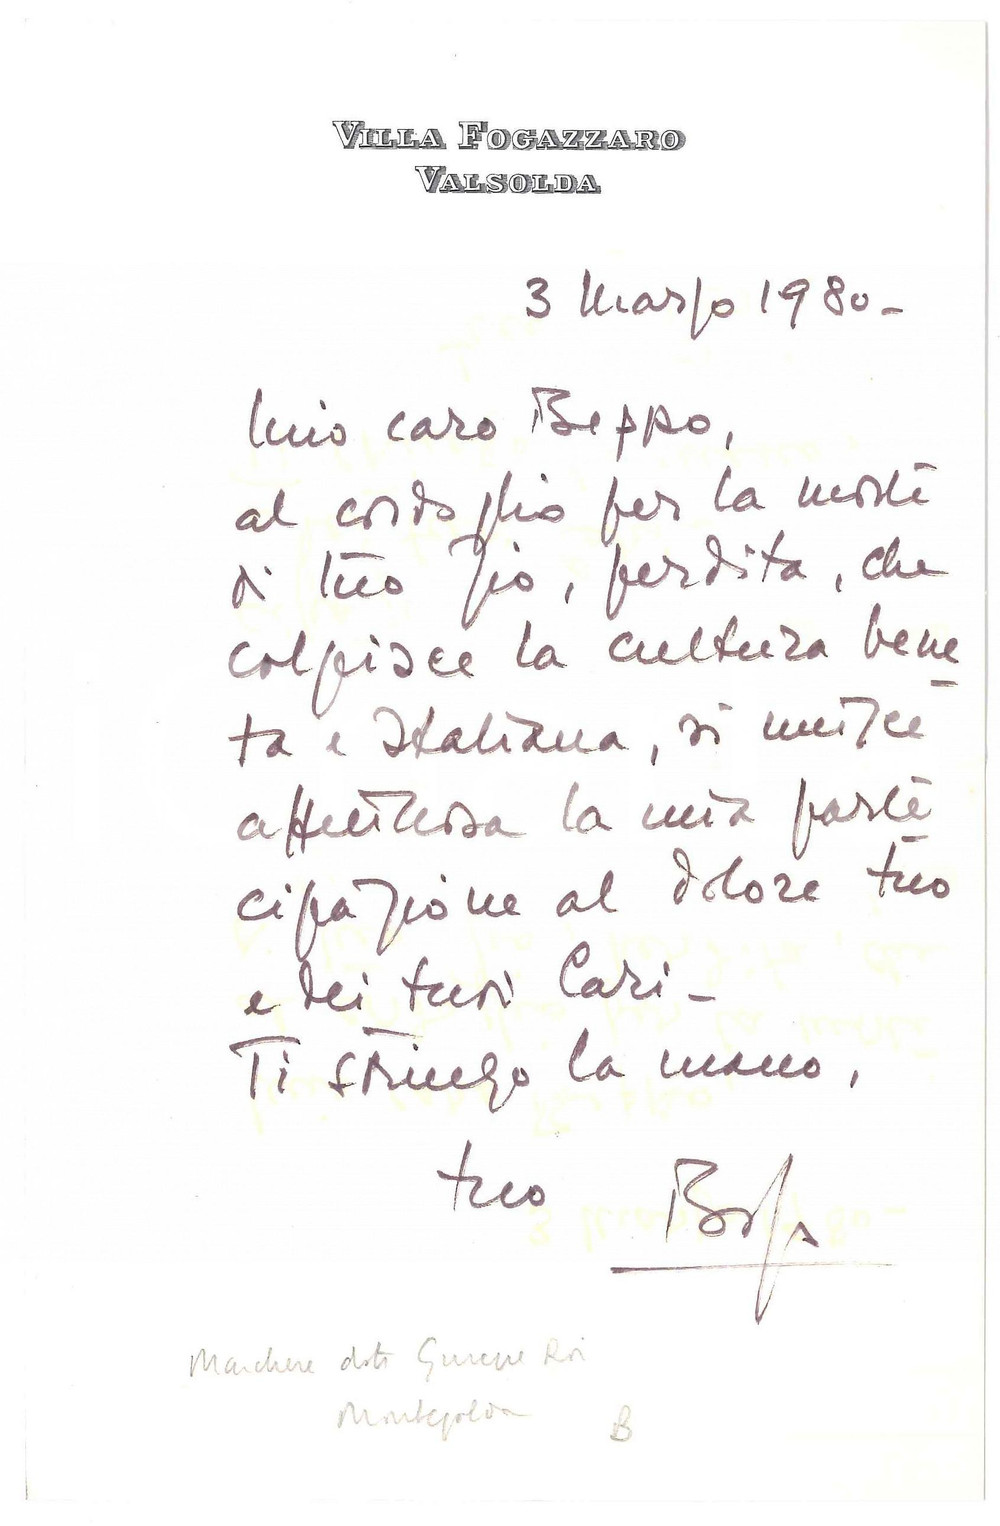 VILLA FOGAZZARO
VALSOLDA
3 Marzo 1980-
Mio caro Beppo,
al cordoglio per la morte
di tuo Zio, perdita, che
colpisce la cultura vene
ta e Italiana, si unisce
affettuosa la mia parte
cipazione al dolore tuo
e dei tuoi Cari-
Ti stringo la mano,
tuo
Marchese dott Giuseppe Roi
Montegalda B